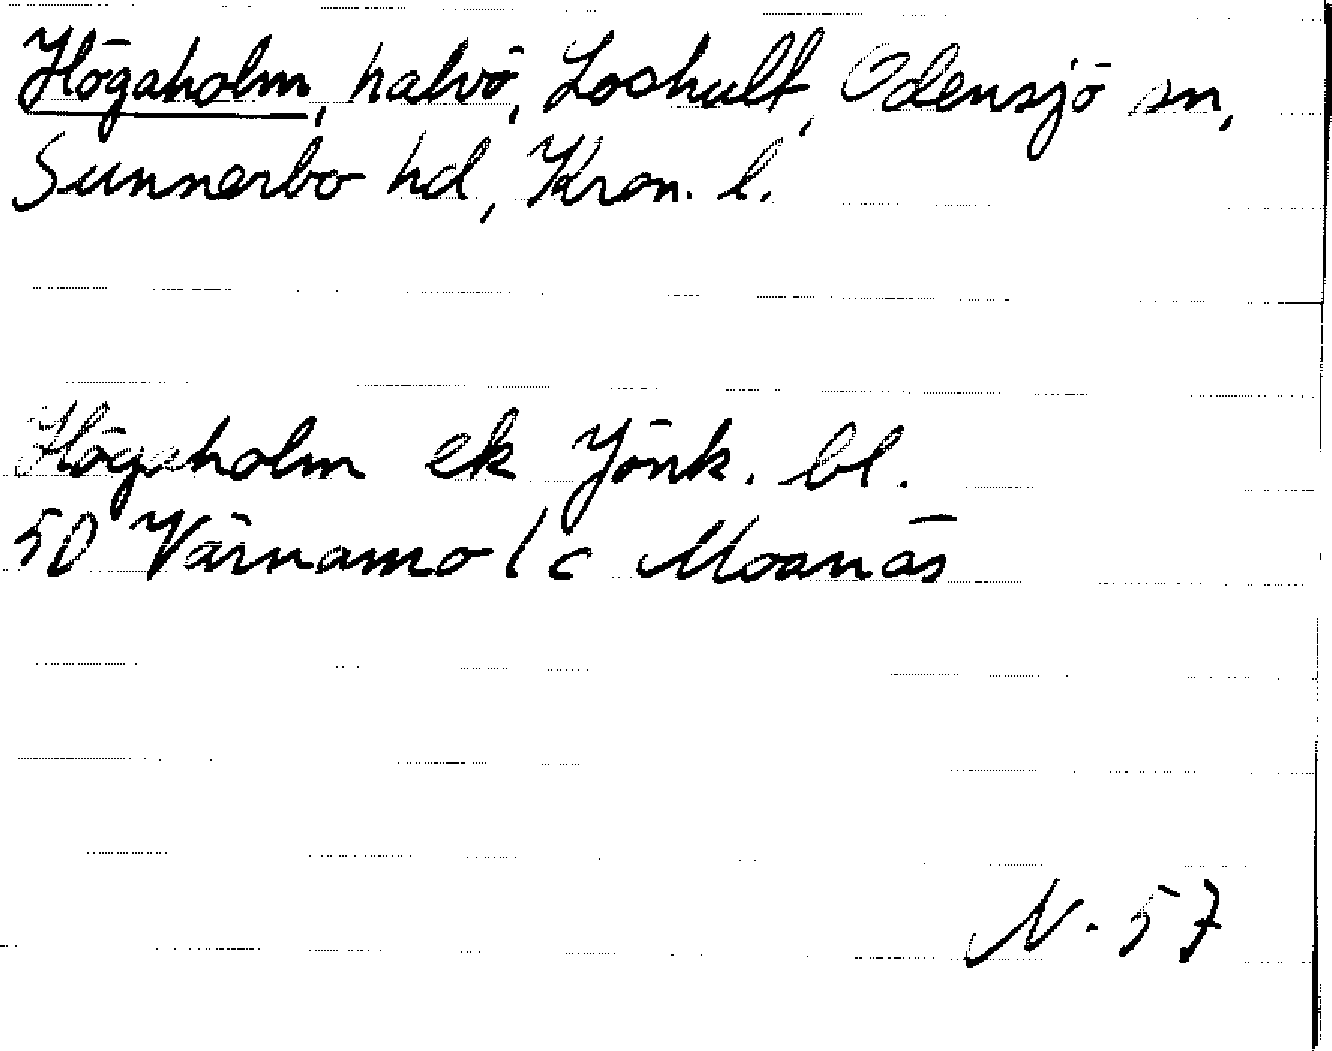 Högaholm, halvö, Loshult, Odensjö sn,
Sunnerbo hd, Kron. l.
Högaholm ek Jönk. bl.
5D Värnamo 1c Moanäs
N. 57